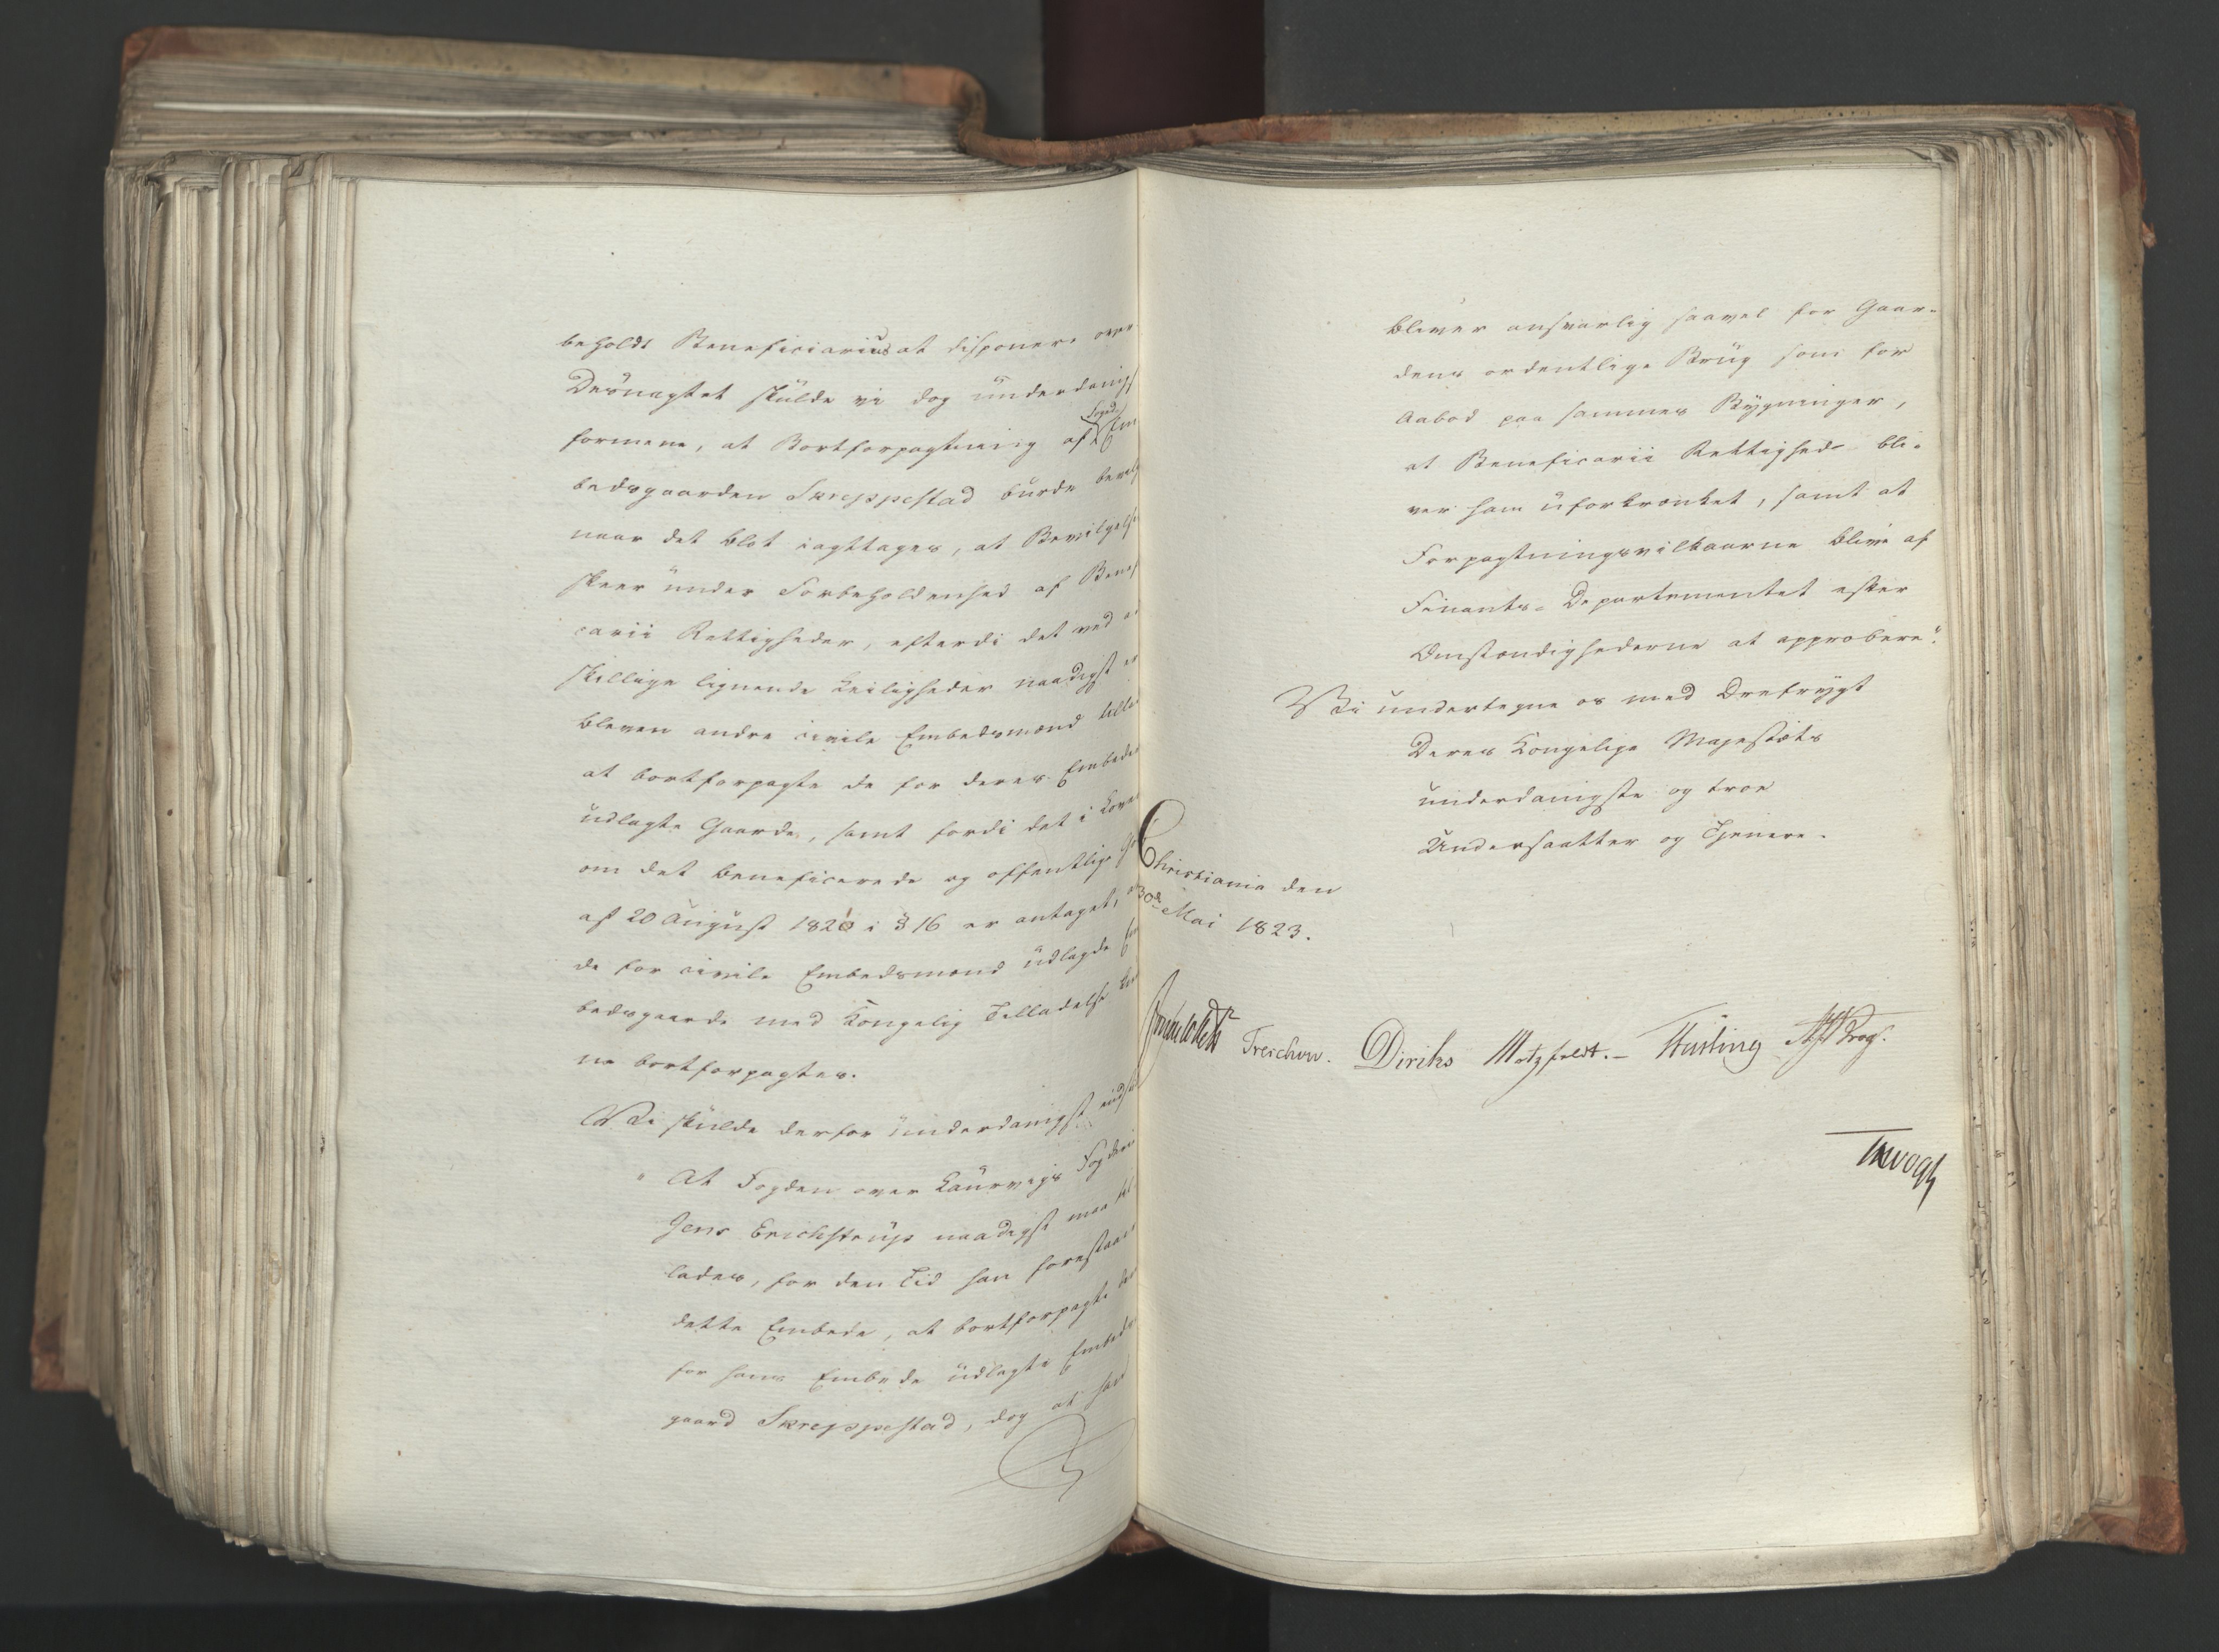 beholdt Beneficiarius at disponere over
Desuagtet skulde vi dog underdanigst
formene, at Bortforpagtning af Foged Em
bedsgaarden Skreppestad burde
naar det blot iagttages, at Bevilgelse
skeer under Forbeholdenhed af Benef
carii Rettigheder, efterdi det ved
skillige lignende Leiligheder naadigst er
bleven andre civile Embedsmænd tilla
at bortforpagte de for deres Embeder
udlagte Gaarde, samt fordi det i Loven
om det beneficerede og offentlige
af 20 August 1821 i § 16 er antaget, at
de for civile Embedsmænd udlagde Em
bedsgaarde med Kongelig Tilladelse kun
ne bortforpagtes.
Vi skulde derfor underdanigst indst
" At Fogden over Laurvigs Fogderie
Jens Erichstrup naadigst maa til
lades, for den Tid han forestaaer
dette Embede, at bortforpagte den
for hans Embede udlagte Embeds
gaard Skreppestad, dog at han
bliver ansvarlig saavel for Gaar-
dens ordentlige Brug som for
Aabod paa sammes Bygninger,
at Beneficarii Rettighed bli-
ver ham uforkrænket, samt at
Forpagtningsvilkaarne blive af
Finants-Departementet efter
Omstændighederne at approbere".
Vi undertegne os med Ærefrygt
Deres Kongelige Majestæts
underdanigste og troe
Undersaatter og Tjenere.
Christiania den
30de Mai 1823.
Treschow. Diriks Motzfeldt.